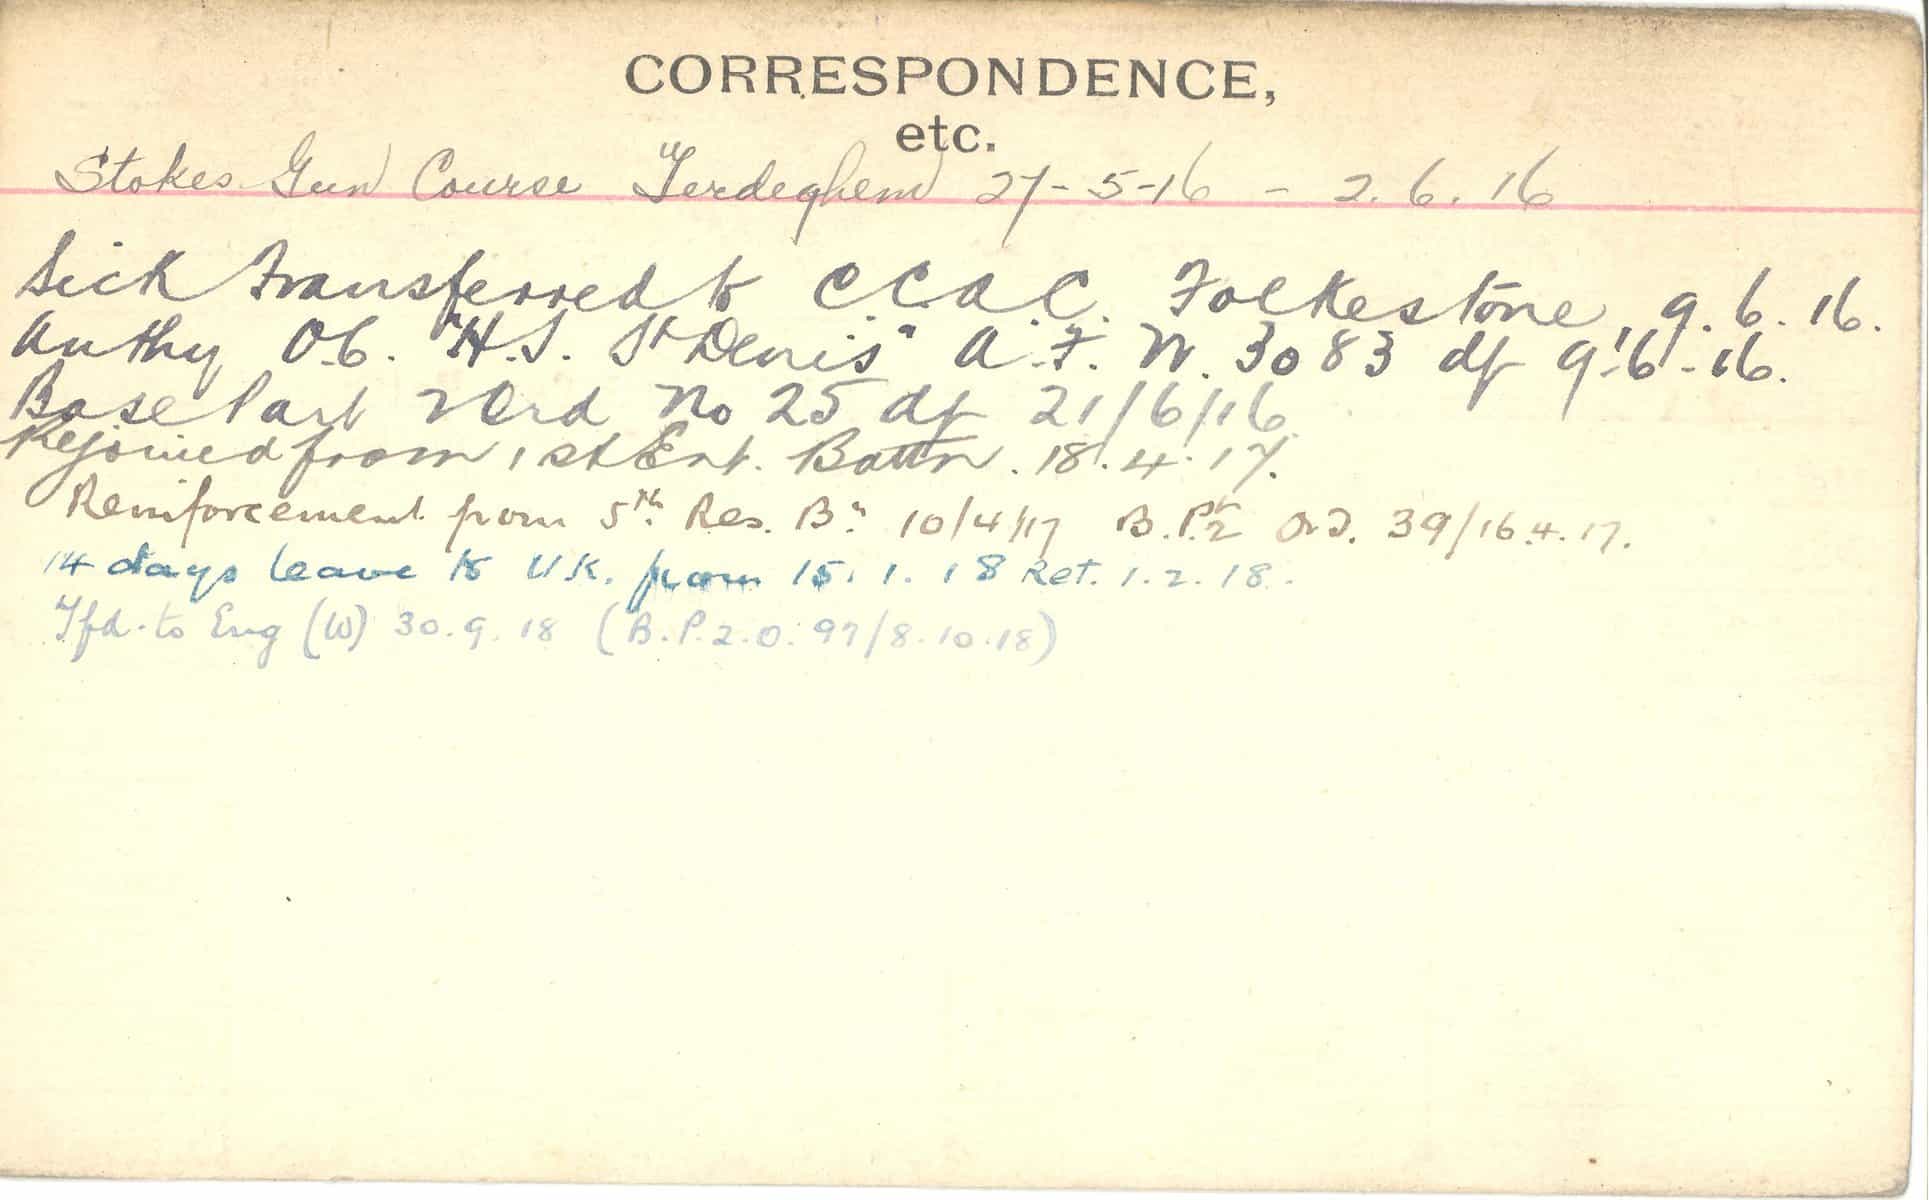 CORRESPONDENCE,
etc.
Stokes Gun Course Terdeghem 27-5-16 - 2.6.16
Sick Transferred to C.C.A.C. Folkestone, 9.6.16.
Authy O.C. "H.S. St Denis" A.F. W. 3083 df 9.6.16.
Base Part 2 Ord No 25 df 21/6/16
Rejoined from 1st Ent. Battn. 18.4.17.
Reinforcement from 5th. Res. Bn 10/4/17 B.Pt 2 Ord. 39/16.4.17.
14 days leave to U.K. from 15.1.18 Ret. 1.2.18.
Tfd. to Eng (W) 30.9.18 (B.P.2.O. 97/8.10.18)